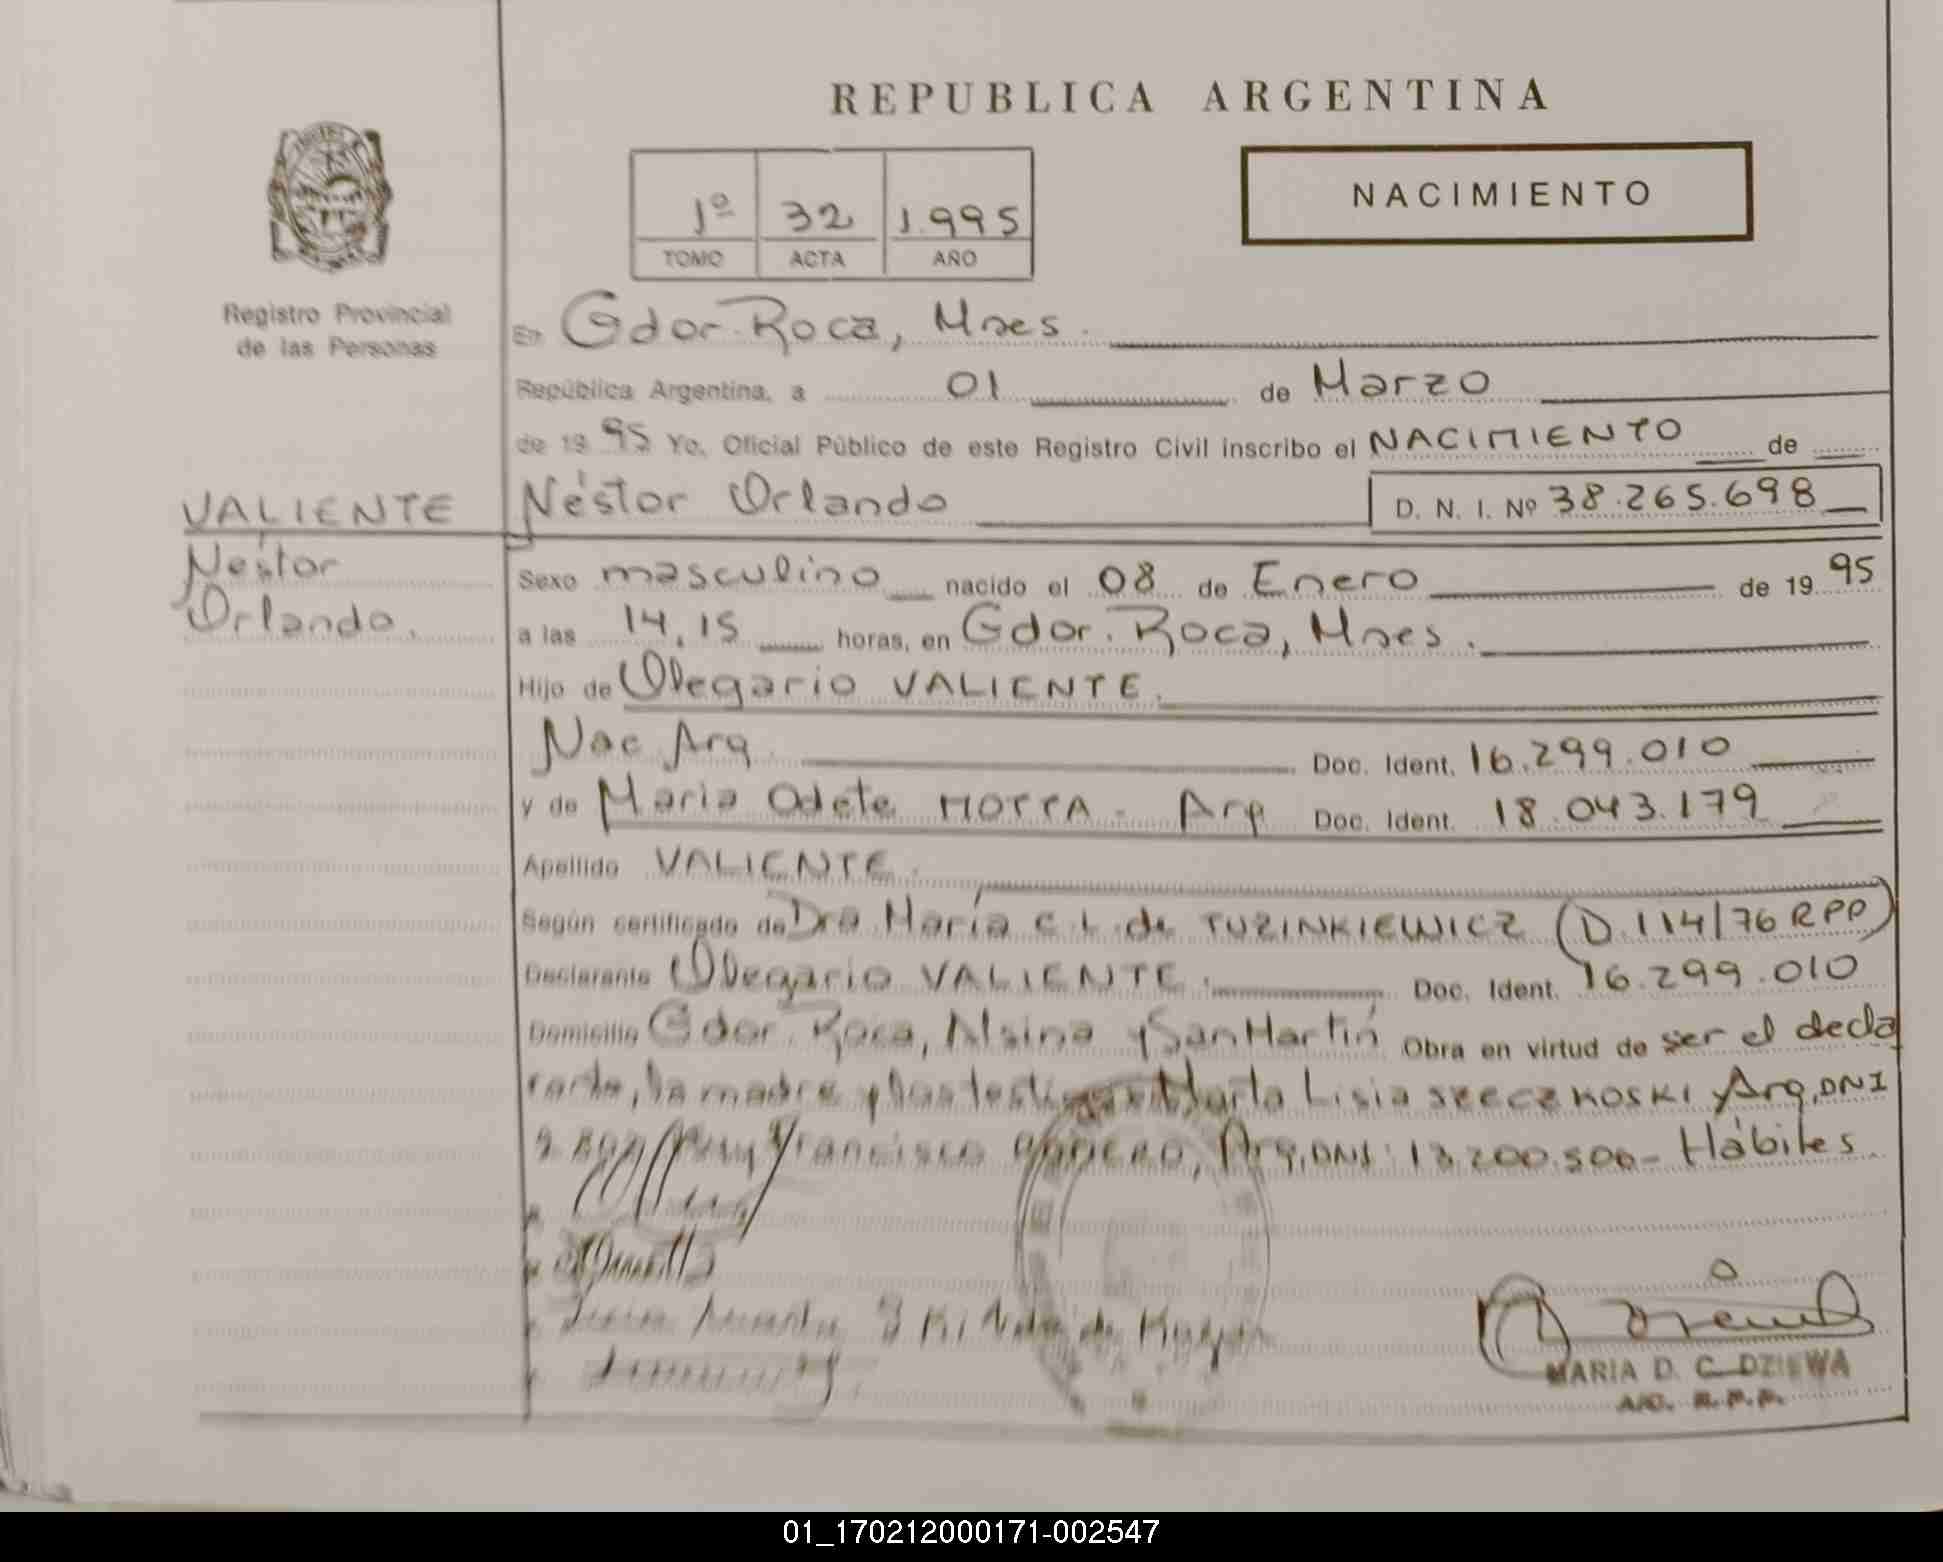 REPUBLICA ARGENTINA
NACIMIENTO
1º 32 1.995
TOMO ACTA AÑO
Registro Provincial
de las Personas
En Gdor. Roca, Mnes.
República Argentina, a 01 de Marzo
de 19 95 Yo, Oficial Público de este Registro Civil inscribo el NACIMIENTO de
VALIENTE
Néstor
Orlando.
Néstor Orlando D. N. I. Nº 38.265.698
Sexo masculino nacido el 08 de Enero de 19 95
a las 14,15 horas, en Gdor. Roca, Mnes.
Hijo de Olegario VALIENTE.
Nac Arg. Doc. Ident. 16.299.010
y de Maria Odete MOTTA - Arg Doc. Ident. 18.043.179
Apellido VALIENTE.
Según certificado de Dra María C L de TUZINKIEWICZ (D.114/76 RPP)
Declarante Olegario VALIENTE. Doc. Ident. 16.299.010
Domicilio Gdor. Roca, Alsina y San Martín Obra en virtud de ser el decla
rante, la madre y los testigos Marta Lisia SZECZKOSKI Arg, DNI
Francisco Arg, DNI 13.200.500- Hábiles.
MARIA D. C. DZIEWA
A/C. R.P.P.
01_170212000171-002547